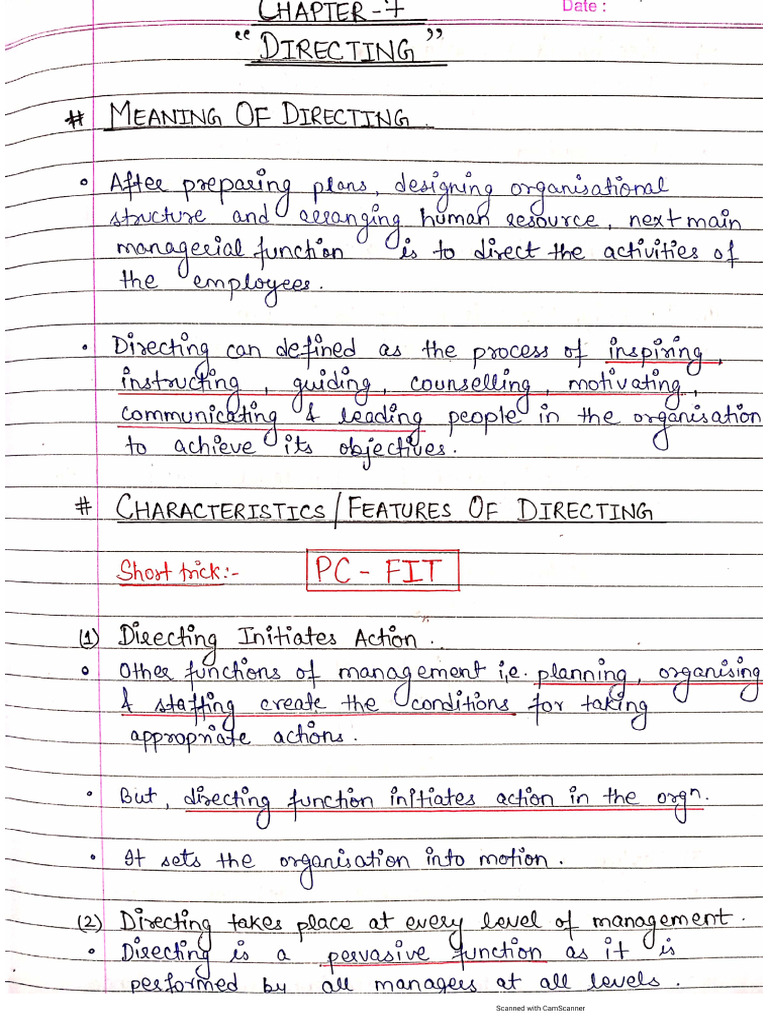 CHAPTER-7
Date :
“DIRECTING”
# MEANING OF DIRECTING.
• After preparing plans, designing organisational
structure and arranging human resource, next main
managerial function is to direct the activities of
the employees.
• Directing can defined as the process of inspiring,
instructing, guiding, counselling, motivating,
communicating & leading people in the organisation
to achieve its objectives.
# CHARACTERISTICS/FEATURES OF DIRECTING
Short trick:- PC - FIT
(1) Directing Initiates Action.
• Other functions of management i,e. planning, organising
& staffing create the conditions for taking
appropriate actions.
• But, directing function initiates action in the orgn.
• It sets the organisation into motion.
(2) Directing takes place at every level of management.
• Directing is a pervasive function as it is
performed by all managers at all levels.
Scanned with CamScanner